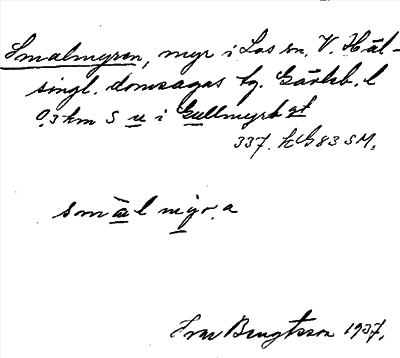 Smalmyren, myr i Los sn, V. Häl-
singl. domsagas tg. Gävleb. l
0,3 km S u i Gullmyrbgt
337. KG 83 SM.
smal myr.a
Ivar Bengtsson 1937.